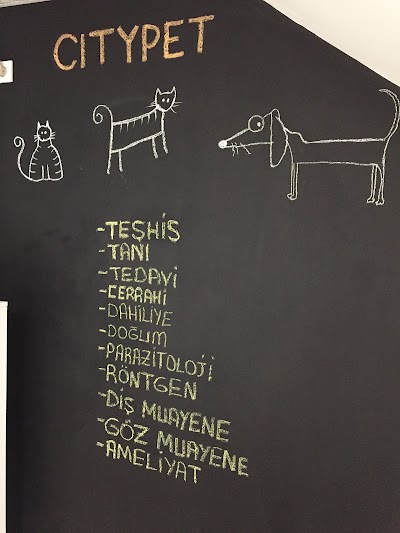 CITYPET
-TEŞHİS
-TANI
-TEDAVİ
-CERRAHİ
-DAHİLİYE
-DOĞUM
-PARAZİTOLOJİ
-RÖNTGEN
-DİŞ MUAYENE
-GÖZ MUAYENE
-AMELİYAT